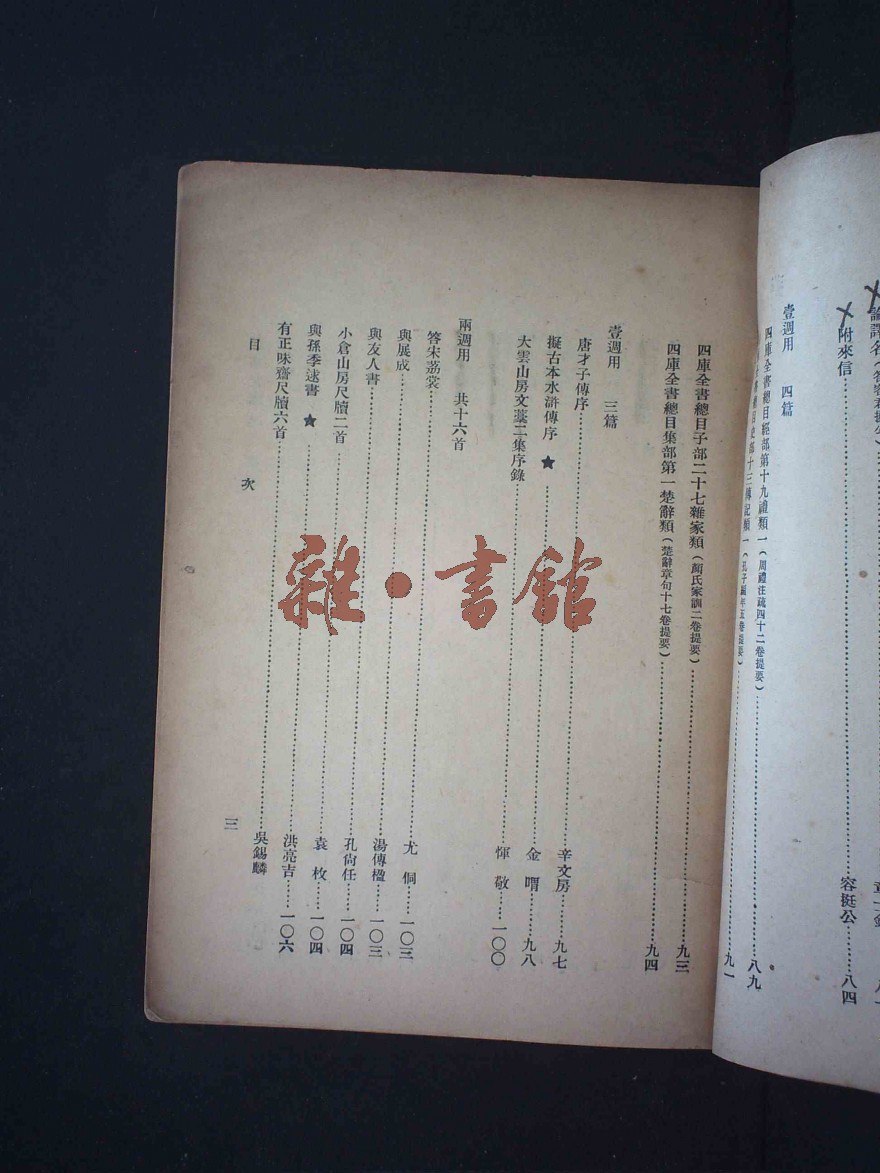 附來信……容挺公……八四
壹週用　四篇
四庫全書總目經部第十九禮類一(周禮注疏四十二卷提要)……八九
史部十三傳記類一(孔子編年五卷提要)……九一
四庫全書總目子部二十七雜家類(顏氏家訓二卷提要)……九三
四庫全書總目集部第一楚辭類(楚辭章句十七卷提要)……九四
壹週用　三篇
唐才子傳序……辛文房……九七
擬古本水滸傳序★……金喟……九八
大雲山房文藁二集序錄……惲敬……一〇〇
兩週用　共十六首
答宋荔裳……尤侗……一〇三
與展成……湯傳楹……一〇三
與友人書……孔尙任……一〇四
小倉山房尺牘二首……袁枚……一〇四
與孫季逑書★……洪亮吉……一〇六
有正味齋尺牘六首……吳錫麟
目次　三
雜·書館